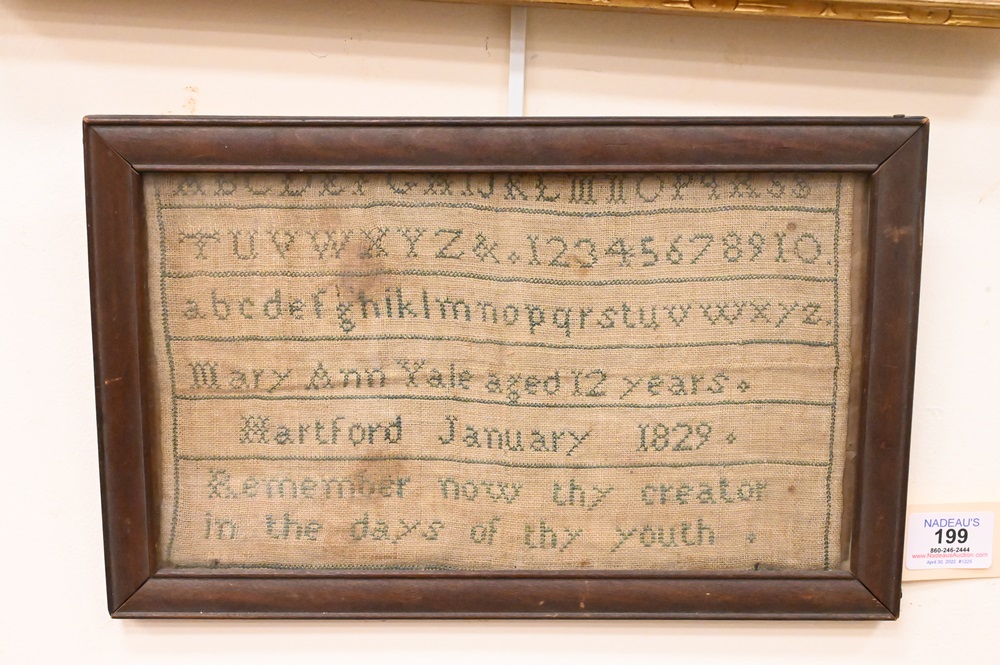 ABCDEFGHIJKLMNOPQRSS
TUVWXYZ&. 12345678910
abcdefghiklmnopqrstuvwxyz.
Mary Ann Yale aged 12 years.
Hartford January 1829.
Remember now thy creator
in the days of thy youth .
NADEAU'S
199
860-246-2444
www.NadeausAuction.com